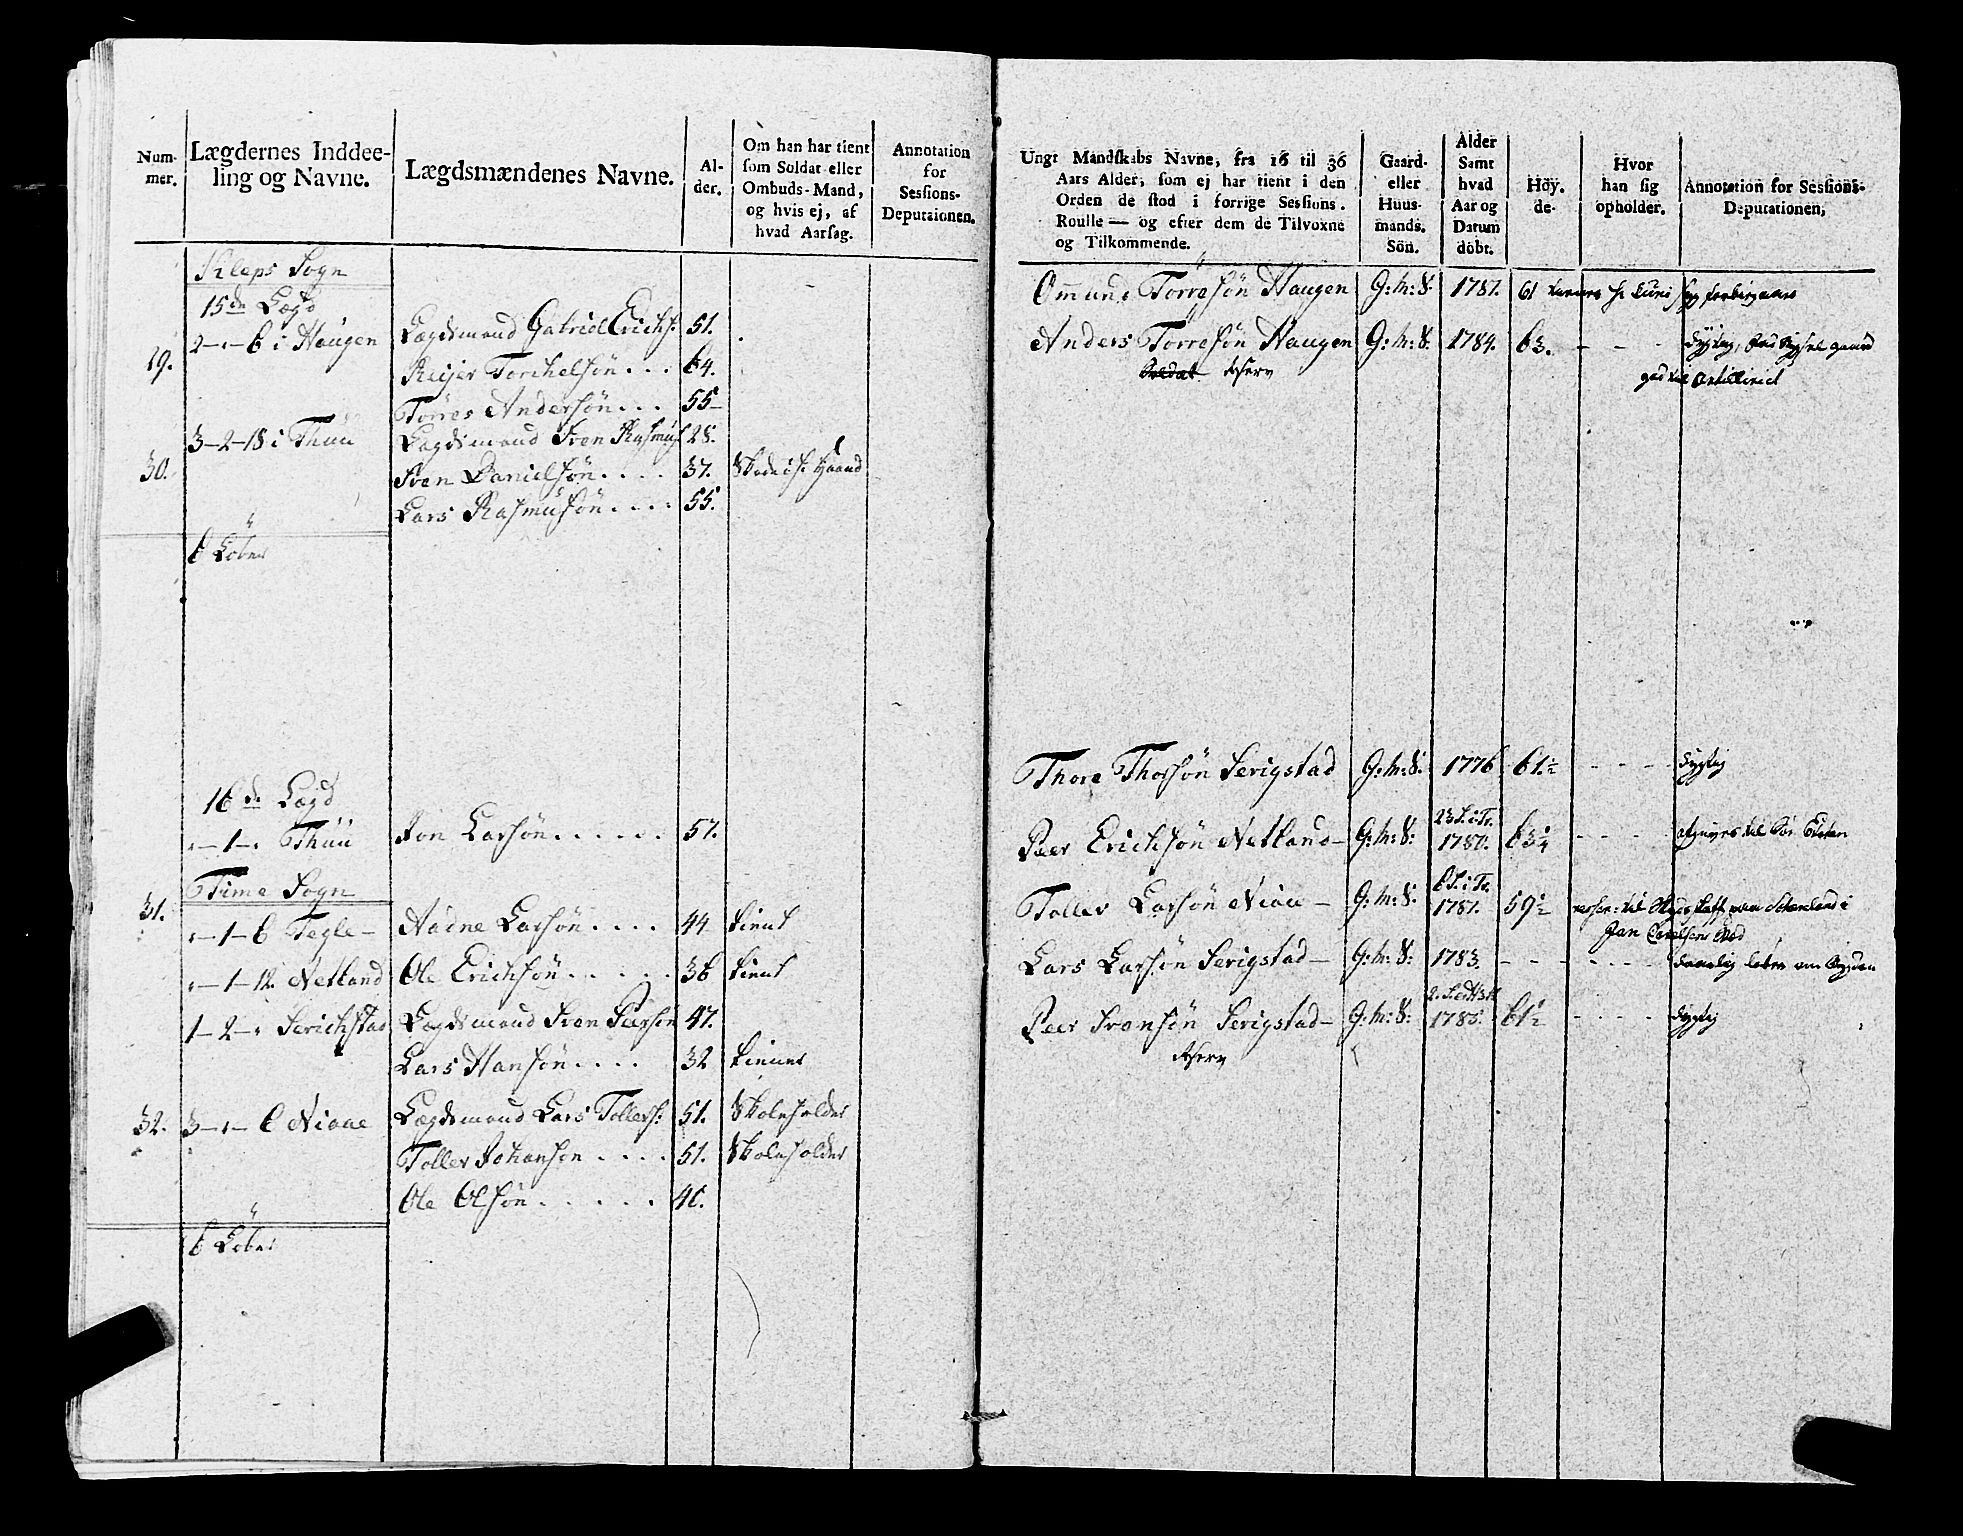 Num-
mer.
Lægdernes Inddee-
ling og Navne.
Lægdsmændenes Navne.
Al-
der.
Om han har tient
som Soldat eller
Ombuds-Mand,
og hvis ej, af
hvad Aarsag.
Annotation
for
Sessions-
Deputaionen.
Kleps Sogn
15de Lægd
2-"-6 i Haugen
Lægdsmand Gabriel Erichs: 51.
29.
Reijer Torchelsøn . . . 64.
Torres Andersøn . . . 55
3-2-18 i Thuu
Lægdsmand Sven Rasmus 28.
30.
Sven Danielsøn . . . . 37.
Lars Rasmusøn . . . . 55.
6 Lober
16de Lægd
"-1-" Thuu
Jon Larsøn . . . . . . 57.
Time Sogn
31.
"-1-6 Tegle
Aadne Larsøn . . . . 44 tient
"-1-12 Netland
Ole Erichsøn . . . . . 36 tient
1-2-" Serichstad
Lægdsmand Sven Peersøn 47.
Lars Hansøn . . . . 32 tiener
32.
3-"-6 Niaae
Lægdsmand Lars Tollevs: 51. Skoleholder
Tollev Johansøn . . . . 51. Skoleholder
Ole Olsøn . . . . . . 46.
6 Lober
Ungt Mandskabs Navne, fra 16 til 36
Aars Alder, som ej har tient i den
Orden de stod i forrige Sessions-
Roulle — og efter dem de Tilvoxne
og Tilkommende.
Gaard-
eller
Huus-
mands-
Sön.
Alder
Samt
hvad
Aar og
Datum
döbt.
Höy-
de.
Hvor
han sig
opholder.
Annotation for Sessions-
Deputationen,
Ommund Torresøn Haugen G:M:S: 1781. 61
Anders Torresøn Haugen G:M:S: 1784. 63. - - -
Soldat Reserv
Thore Thorsøn Serigstad G:M:S: 1776 61½ - - - - dygtig
Peer Erichsøn Netland - G:M:S: 23 S.i Tr. 1780. 63¼ - - - -
Tollev Larsøn Niaae - G:M:S: 6 S.i Tr. 1781. 59½
Lars Larsøn Serigstad - G:M:S: 1783. - - - - - -
Peer Svensøn Serigstad - G:M:S: 1785. 61½ - - - - dygtig
Reserv